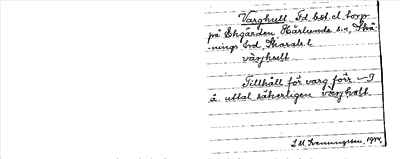 Varghult Fd bst o. torp
på Ekgården Härlunda sn,
-nings hd, Skarab. l.
varghult
Tillhåll för varg förr. I
å. uttal säkerligen varghult.
J. M. Svenningsson, 1924